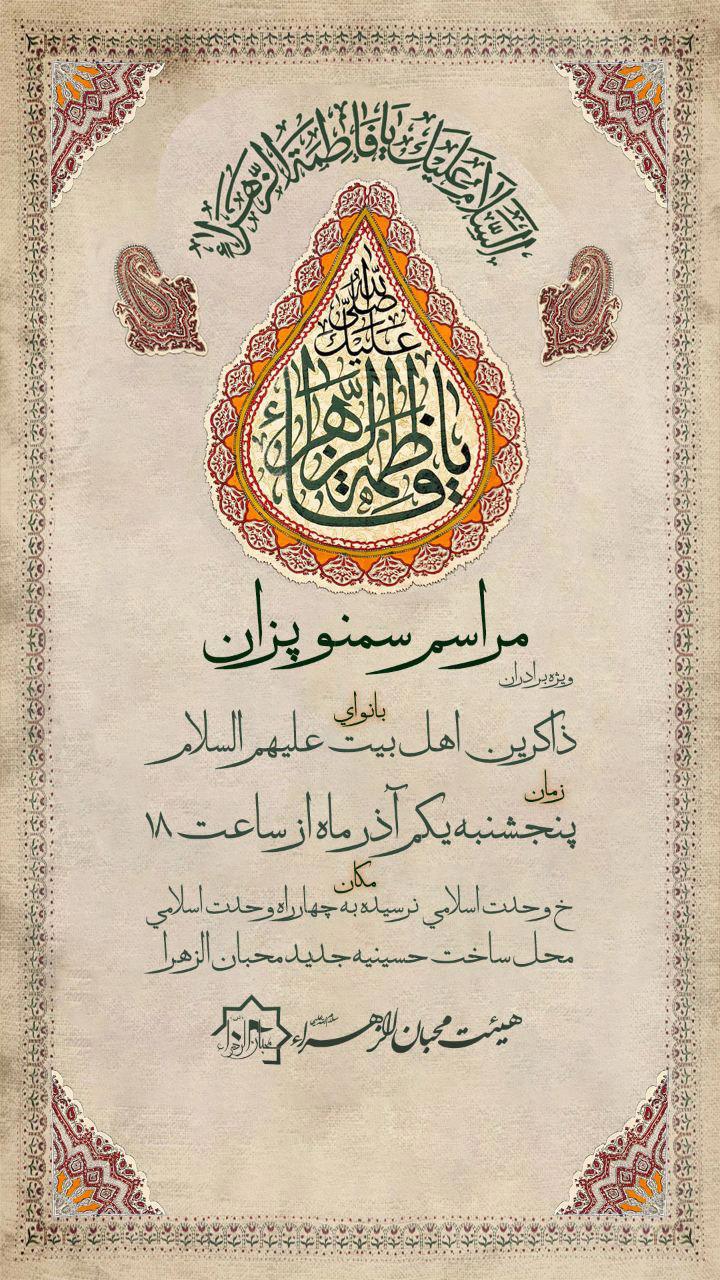 السَّلامُ عَلَيْكِ يا فاطِمَةُ الزَّهْراءُ
صَلَّى اللهُ
عَلَيْكِ
يا فاطمة الزهراء
مراسم سمنو پزان
ویژه برادران
بانواي
ذاكرين اهل بيت عليهم السلام
زمان
پنجشنبه يكم آذر ماه از ساعت ۱۸
مكان
خ وحدت اسلامي نرسيده به چهارراه وحدت اسلامي
محل ساخت حسينيه جديد محبان الزهرا
هیئت محبان الزهراء
محبان الزهراء